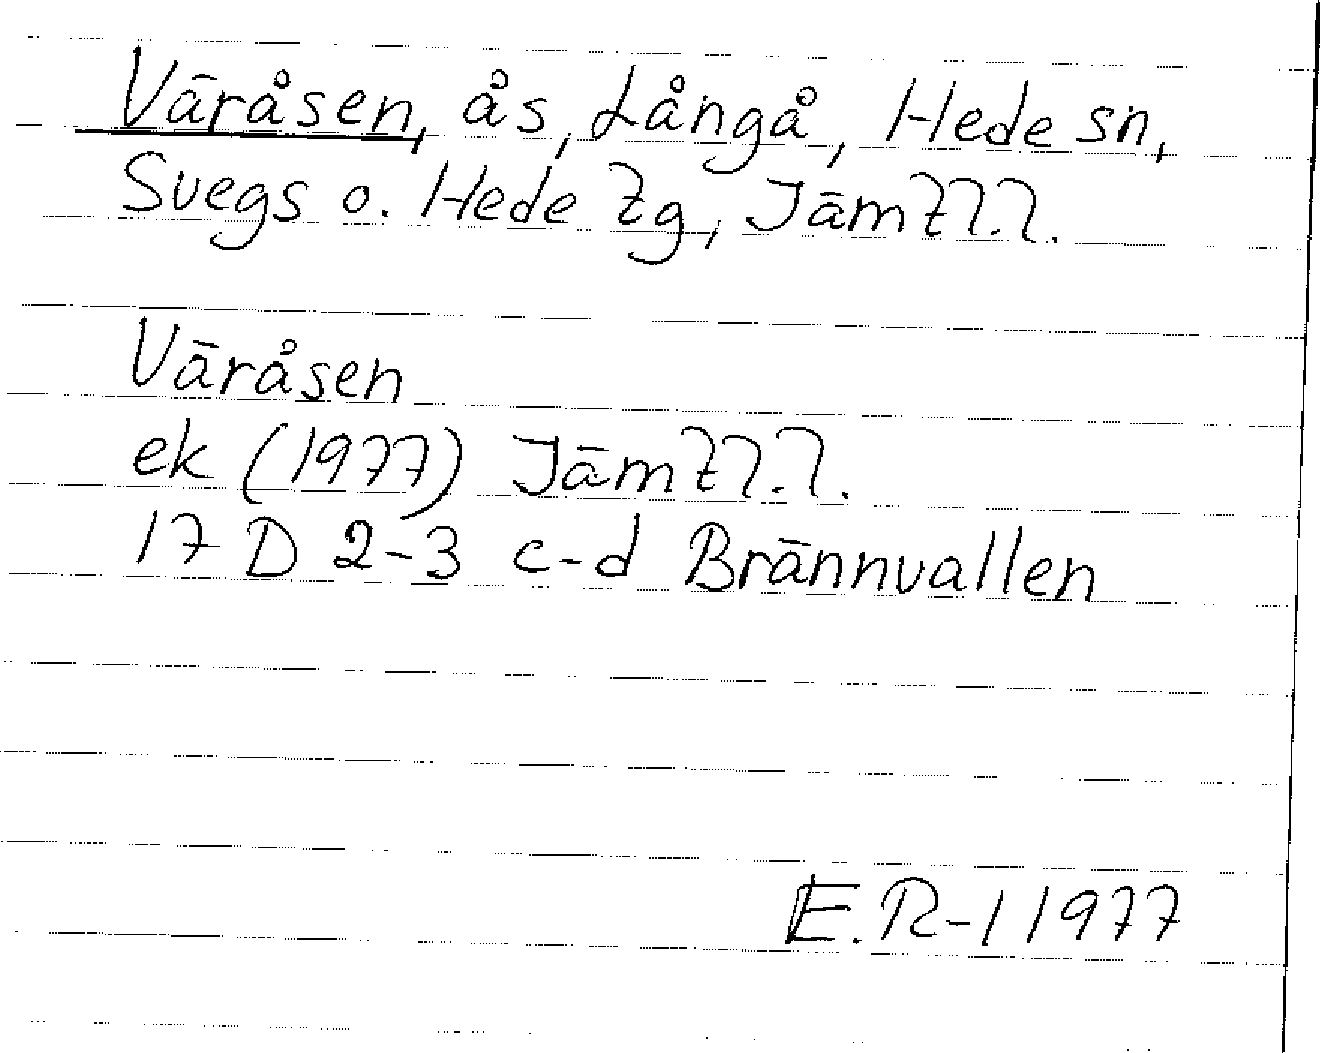 Väråsen, ås, Långå, Hede sn,
Svegs o. Hede tg, Jämtl.l.
Väråsen
ek (1977) Jämtl.l.
17 D 2-3 c-d Brännvallen
E.R-l 1977